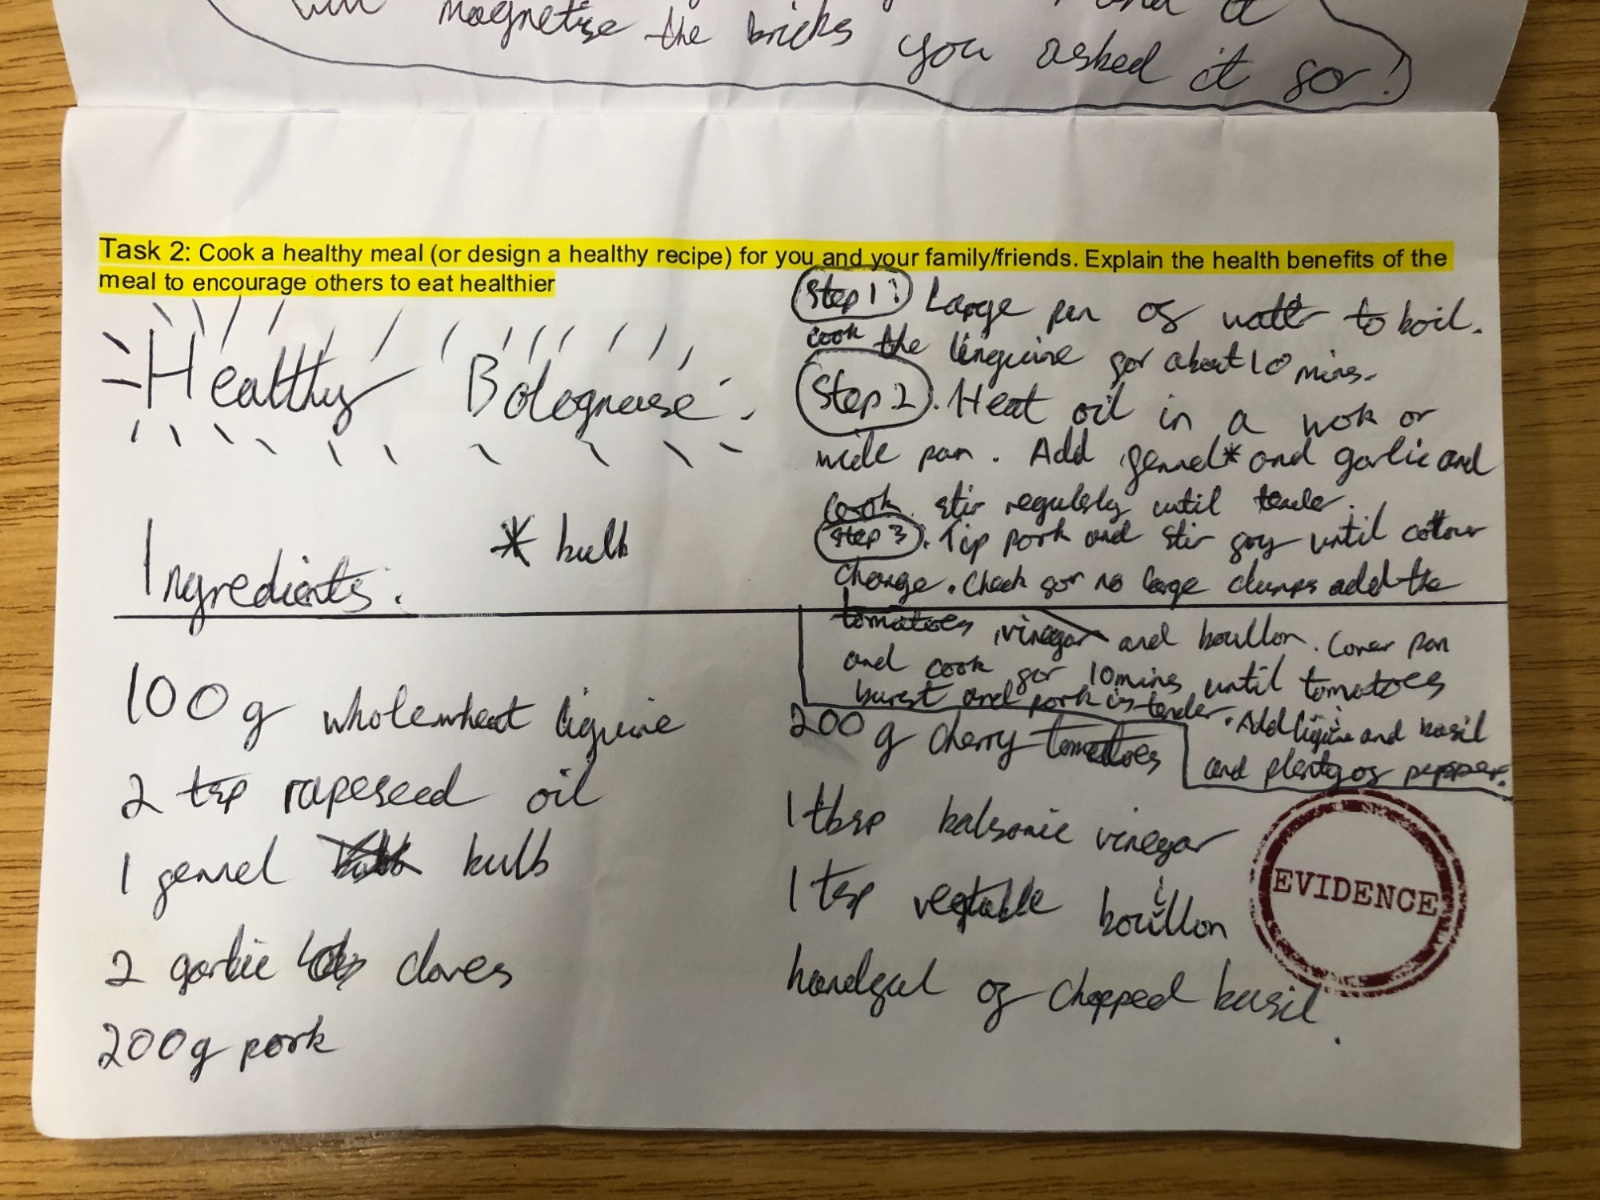 magnetise the bricks you asked it so!
Task 2: Cook a healthy meal (or design a healthy recipe) for you and your family/friends. Explain the health benefits of the
meal to encourage others to eat healthier
Healthy Bolognese.
* bulb
Ingredients:
100g wholewheat liguine
2 tsp rapeseed oil
1 fennel bulb
2 garlic cloves
200g pork
Step 1: Large pan of water to boil.
cook the linguine for about 10 mins.
Step 2. Heat oil in a wok or
wide pan. Add fennel* and garlic and
cook. stir regularly until tender.
Step 3. Tip pork and stir fry until colour
change. Check for no large clumps add the
tomatoes, vinegar and bouillon. Cover pan
and cook for 10mins until tomatoes
burst and pork is tender. Add liguine and basil
and plenty of pepper.
200g cherry tomatoes
1 tbsp balsomic vinegar
1 tsp vegtable bouillon
handful of chopped basil.
EVIDENCE